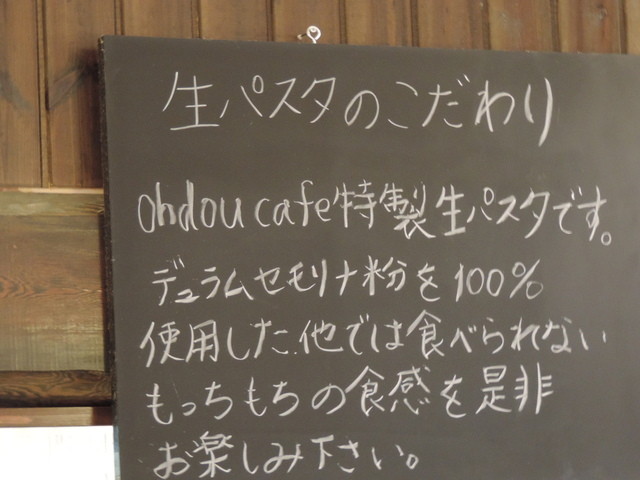 生パスタのこだわり
ohdou cafe特製生パスタです。
デュラムセモリナ粉を100%
使用した他では食べられない
もっちもちの食感を是非
お楽しみ下さい。